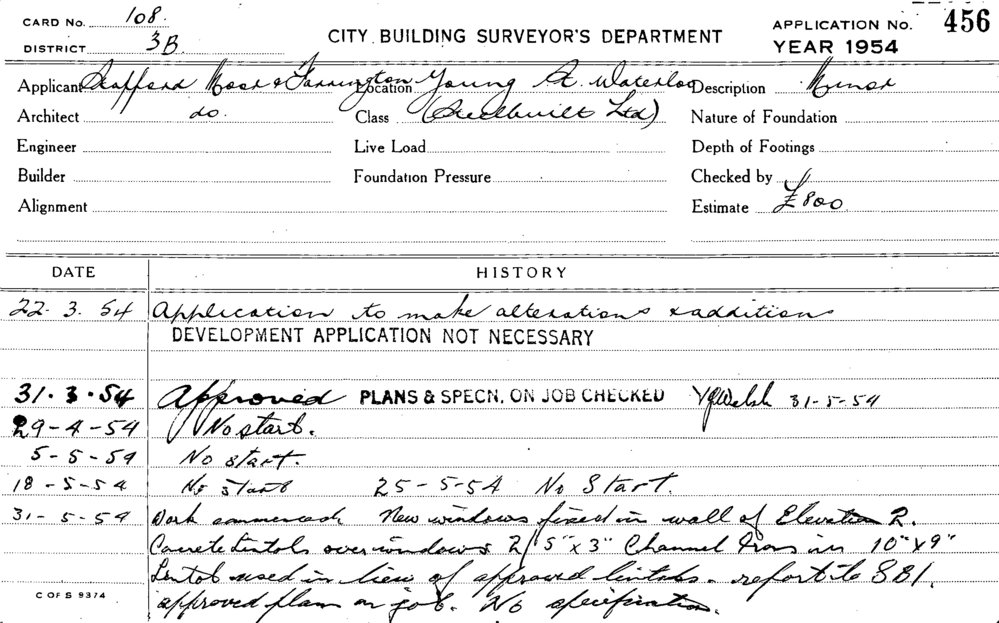 CARD No. 108.
APPLICATION No. 456
DISTRICT 3B.
CITY BUILDING SURVEYOR'S DEPARTMENT
YEAR 1954
Applicant Stafford Moor & Farrington Location Young St. Waterloo Description Minor
Architect do. Class (Steelbuilt Ltd) Nature of Foundation
Engineer Live Load Depth of Footings
Builder Foundation Pressure Checked by
Alignment Estimate £800.
DATE HISTORY
22. 3. 54 Application to make alterations & additions
DEVELOPMENT APPLICATION NOT NECESSARY
31. 3. 54 Approved PLANS & SPECN. ON JOB CHECKED Welsh 31-5-54
29-4-54 No start.
5-5-54 No start.
18-5-54 No start 25-5-54 No Start.
31-5-54 Work commenced. New windows fixed in wall of Elevation 2.
Concrete Lintols over windows. 2/5"x3" Channel Irons in 10"x9"
Lintols used in lieu of approved lintols. report to SBI.
approved plan on job. No specification.
C OF S 9374